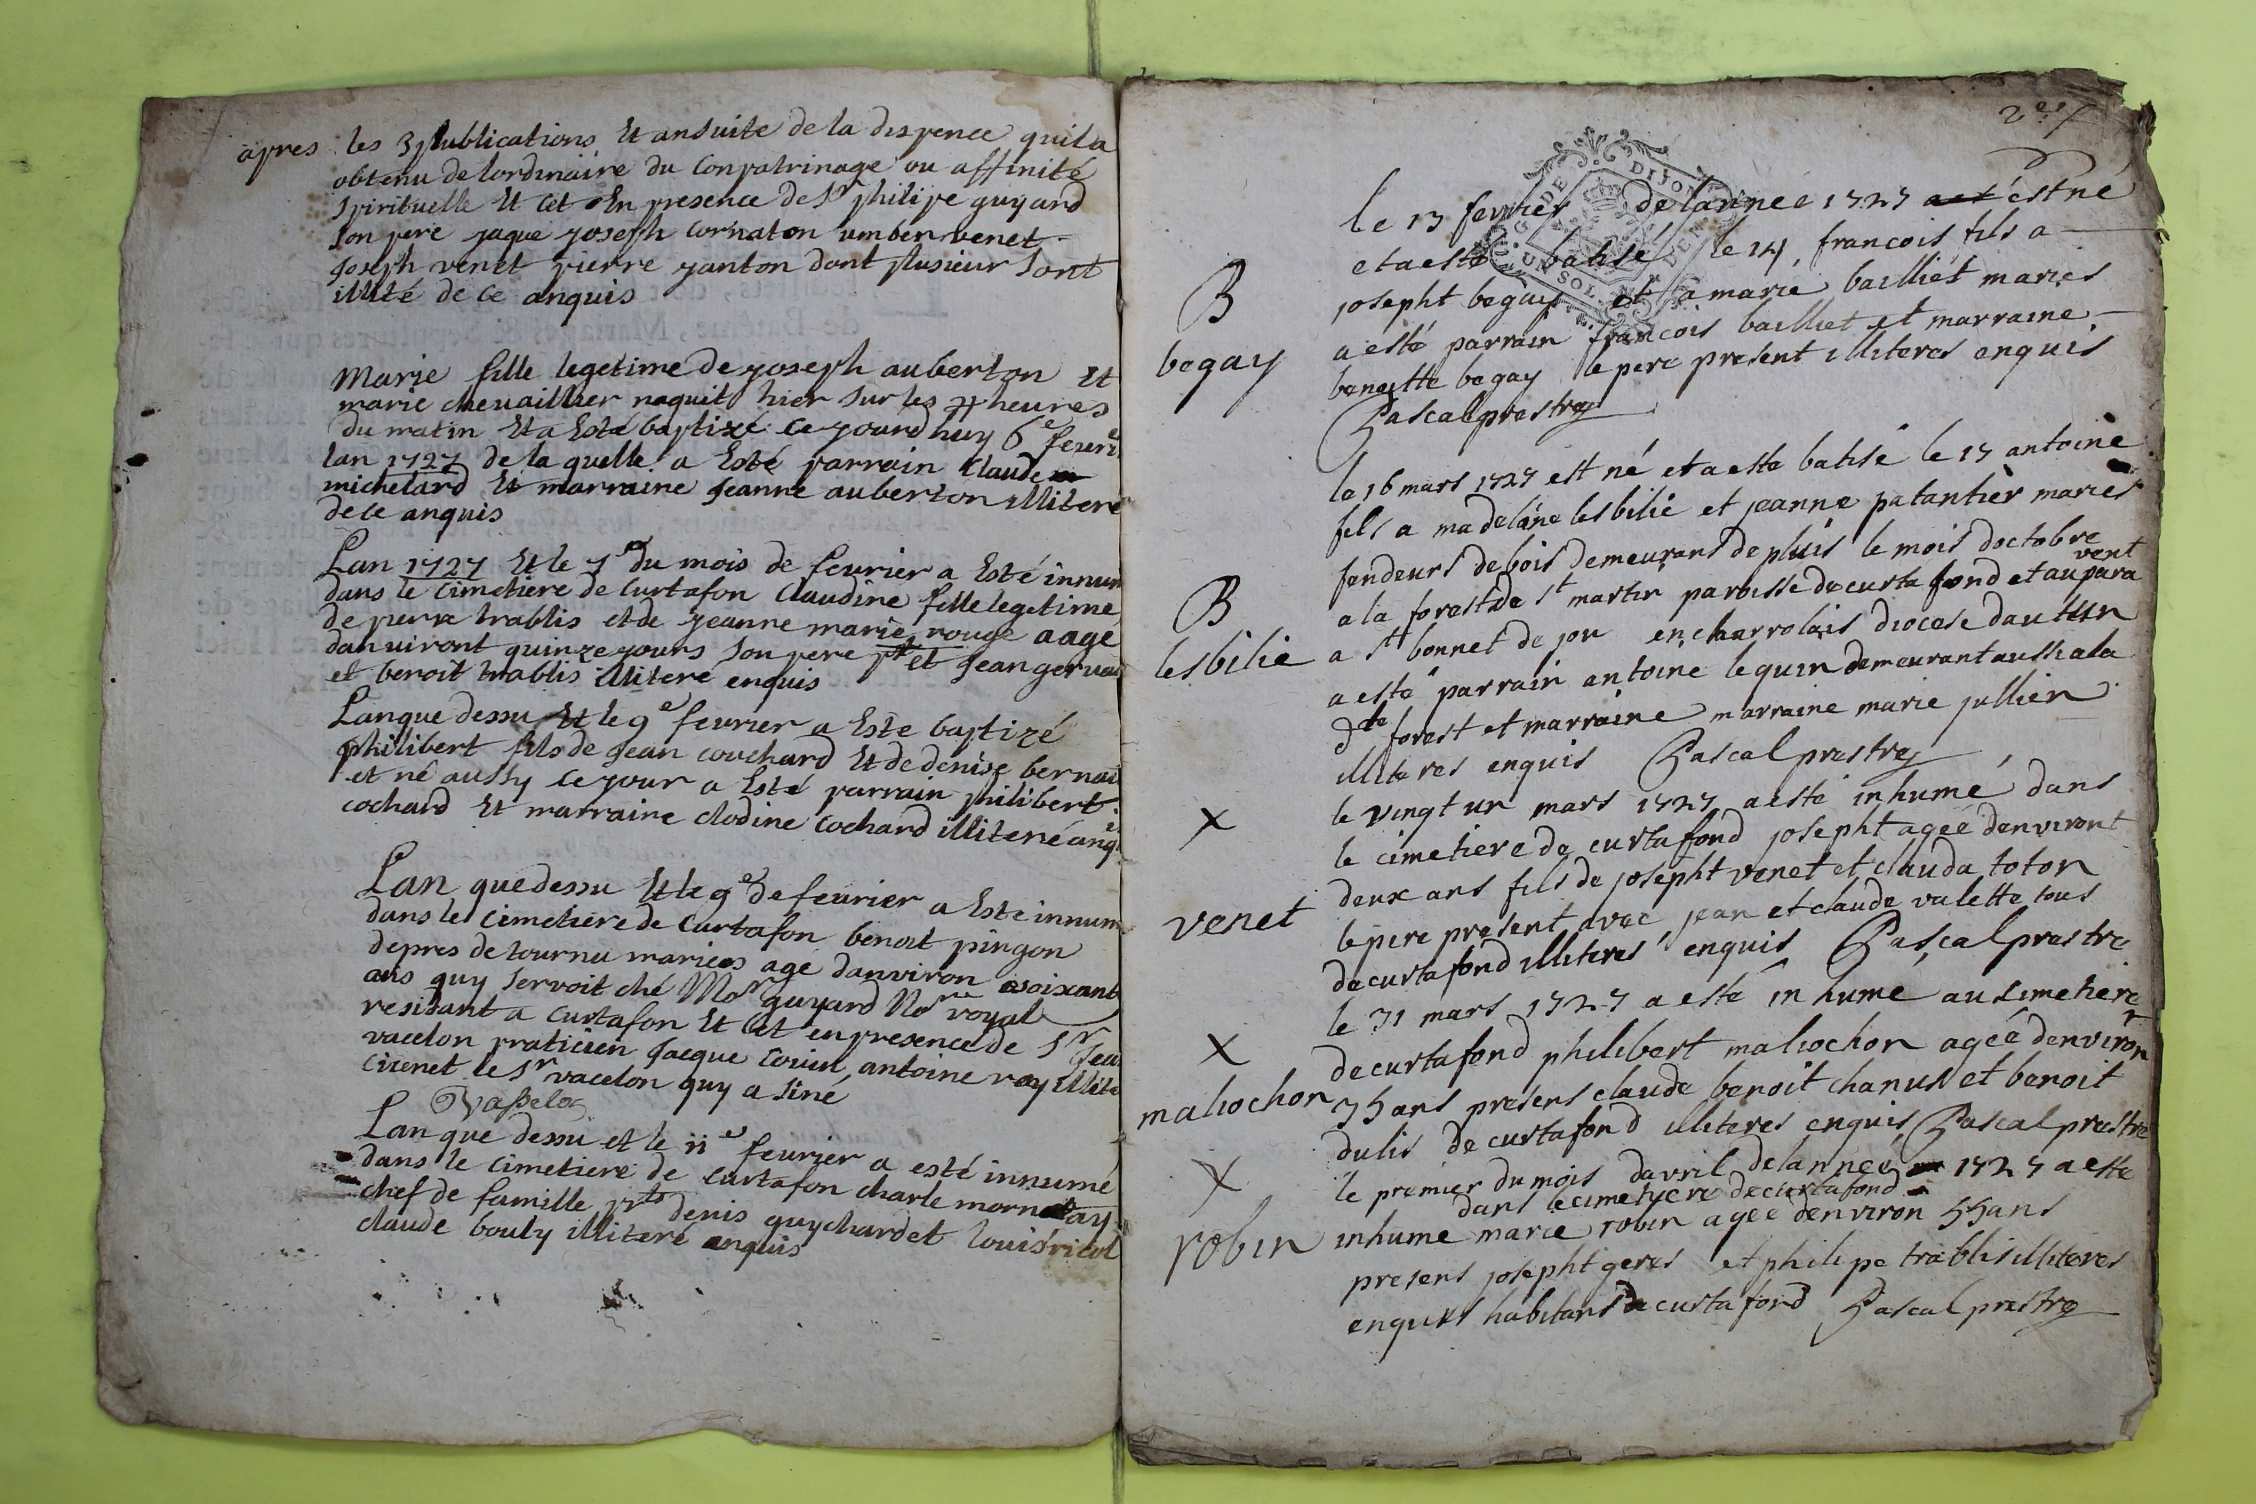 apres les 3 publications Et ansuite de la dispence quil a
obtenu de lordinaire du Conpatrinage ou affinité
spirituelle Et Cet En presence de Sr philipe guyard
son pere jaque joseph Cornaton umber venet
joseph venet pierre janton dont plusieur sont
illité de ce anquis
Marie fille legetime de joseph auberton Et
marie chevaillier naquit hier sur les heures
du matin Et a Esté baptizé ce jourd huy 6e feuri
lan 1727 de la quelle a Esté parrain Claude
michelard Et marraine jeanne auberton illitere
de ce anquis
Lan 1727 Et le 7e du mois de feurier a Esté innum
dans le Cimetiere de Curtafon Claudine fille legetime
de pierre trablis et de jeanne marie rouge aagé
danuiront quinze jours son pere pt et jean gervai
et benoit trablis illitere enquis
Lan que dessu Et le 9e feurier a Este baptizé
philibert fils de jean couchard Et de denise bernai
et né aussy ce jour a Esté parrain philibert
cochard Et marraine clodine Cochard illiteré anq
Lan que dessu Et le 9e de feurier a Este innum
dans le Cimetiere de Curtafon benoit pingon
depres de tournu mariees agé danviron soixant
ans quy servoit ché Mor guyard Nore royal
residant a Curtafon Et Cet en presence de Sr
vacelon praticien jacque Couin antoine ray illite
cirenet le Sr vacelon quy a siné
Vasselon
Lan que dessu et le 11e feurier a esté innumé
dans le Cimetiere de Curtafon charle mornetay
chef de famille pnts denis guychard et louis ricol
claude bouly illiteré anquis
2e
le 13 fevrier de lannéé 1727 est né
et a esté batisé le 14 francois fils a
B
josepht begay et a marie bailliet mariés
begay
a esté parrain francois bailliet et marraine
benoitte begay le pere present illiteres enquis
Pascal prestre
DE DIJON
UN SOL
le 16 mars 1727 est né et a este batisé le 17 antoine
fils a madelène lesbilie et jeanne patantier mariés
fendeurs de bois demeurans depluis le mois doctobre
B
a la forest de st martin paroisse de curtafond et aupara
vent
lesbilie
a st bonnet de jou en charrolois diocese dautun
a esté parrain antoine lequin demeurant aussi a la
dte forest et marraine marraine marie jullien
illiteres enquis Pascal prestre
X
le vingt un mars 1727 a esté inhumé dans
le cimetiere de curtafond josepht agéé denviront
deux ans fils de josepht venet et clauda toton
venet
le pere present avec jean et claude valette tous
de curtafond illiteres enquis Pascal prestre
le 31 mars 1727 a esté inhumé au simetiere
X
de curtafond philibert maliochon agéé denviron
maliochon
35 ans presens claude benoit chanus et benoit
dulis de curtafond illiteres enquis Pascal prestre
X
le premier du mois davril de lannéé 1727 a este
dans le cimetyere de curtafond
robin
inhume marie robin agee denviron 55 ans
presens josepht geres et philipe trablis illiteres
enquis habitans de curtafond Pascal prestre